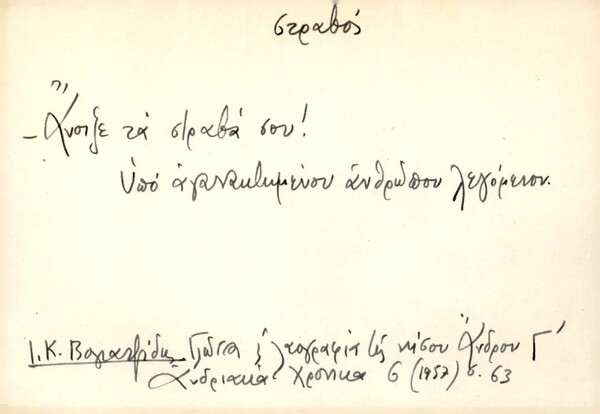 στραβός
– Ἄνοιξε τὰ στραβά σου!
Ὑπό ἀγανακτημένου ἀνθρώπου λεγόμενον.
Ι. Κ. Βογιατζίδης Γλῶσσα & λαογραφία τῆς νήσου Ἄνδρου Γ΄
Ἀνδριακὰ Χρονικα 6 (1957) σ. 63